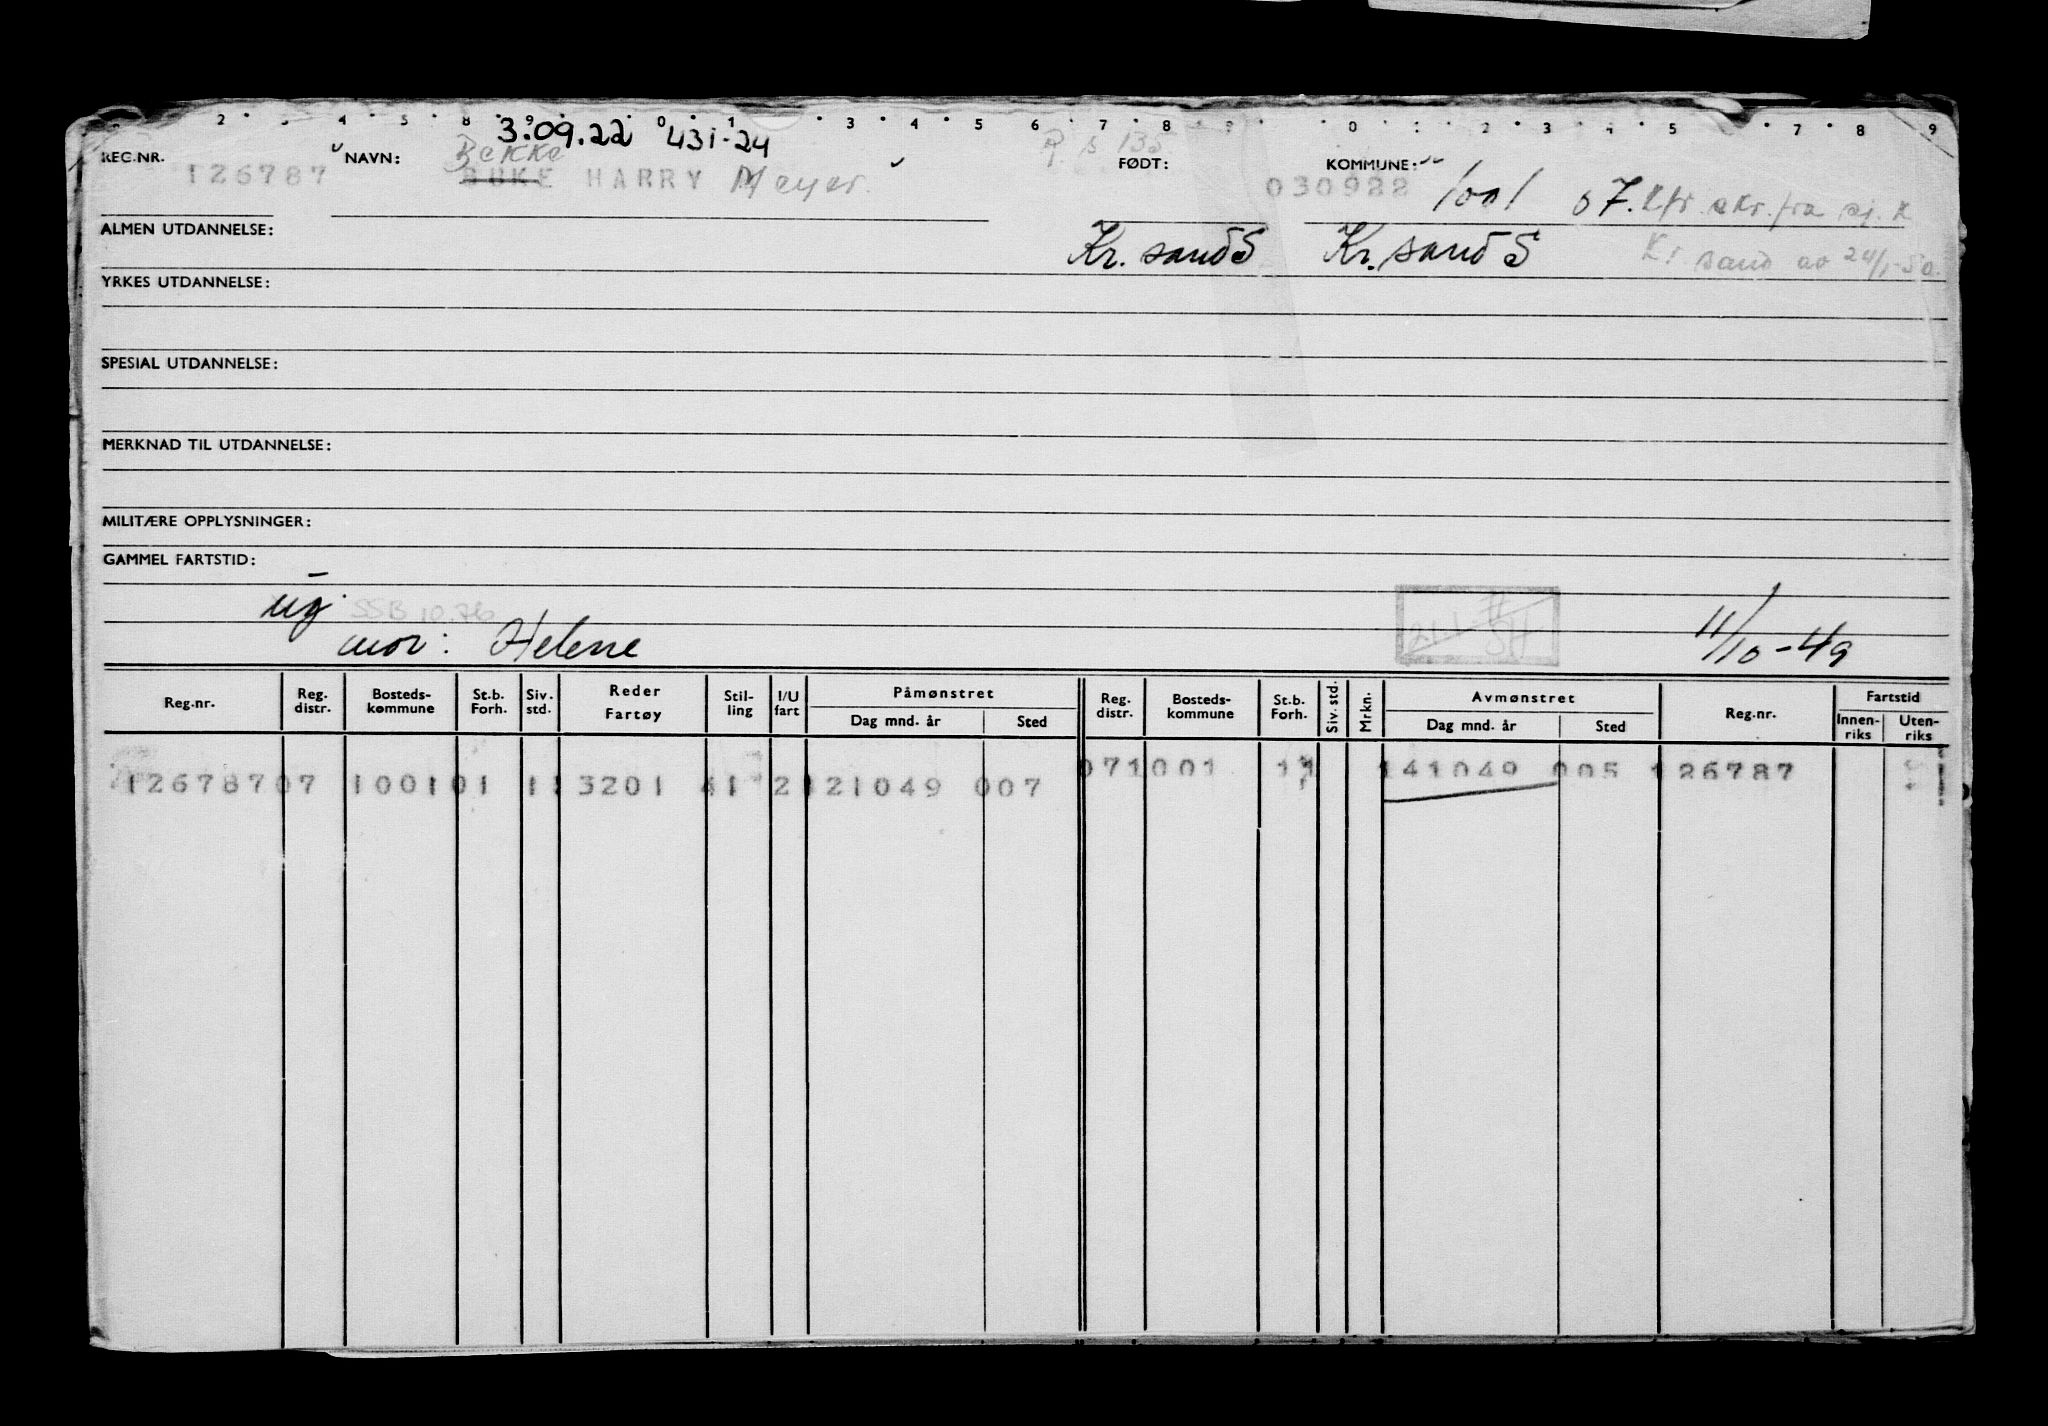 2 3 4 5 8 9 0 1 3 4 5 6 7 8 9 0 1 2 3 4 5 7 8 9
3.09.22 431-24
Bekke
REG.NR. 126787 NAVN: BUKE HARRY Meyer. FØDT: 030922 KOMMUNE: 1001 07. Kfr. skr. fra sj. k
ALMEN UTDANNELSE: Kr. sand S Kr. sand S Kr sand av 24/1-50.
YRKES UTDANNELSE:
SPESIAL UTDANNELSE:
MERKNAD TIL UTDANNELSE:
MILITÆRE OPPLYSNINGER:
GAMMEL FARTSTID:
ug SSB 10.76
mor: Helene 11/10-49
Reg.nr. Reg. distr. Bosteds-kommune St.b. Forh. Siv. std. Reder Fartøy Stil-ling I/U fart Påmønstret Dag mnd. år Sted Reg. distr. Bosteds-kommune St.b. Forh. Siv. std. Mrkn. Avmønstret Dag mnd. år Sted Reg.nr. Fartstid Innen-riks Uten-riks
126787 07 1001 01 11 3201 41 2 121049 007 07 1001 11 141049 005 126787